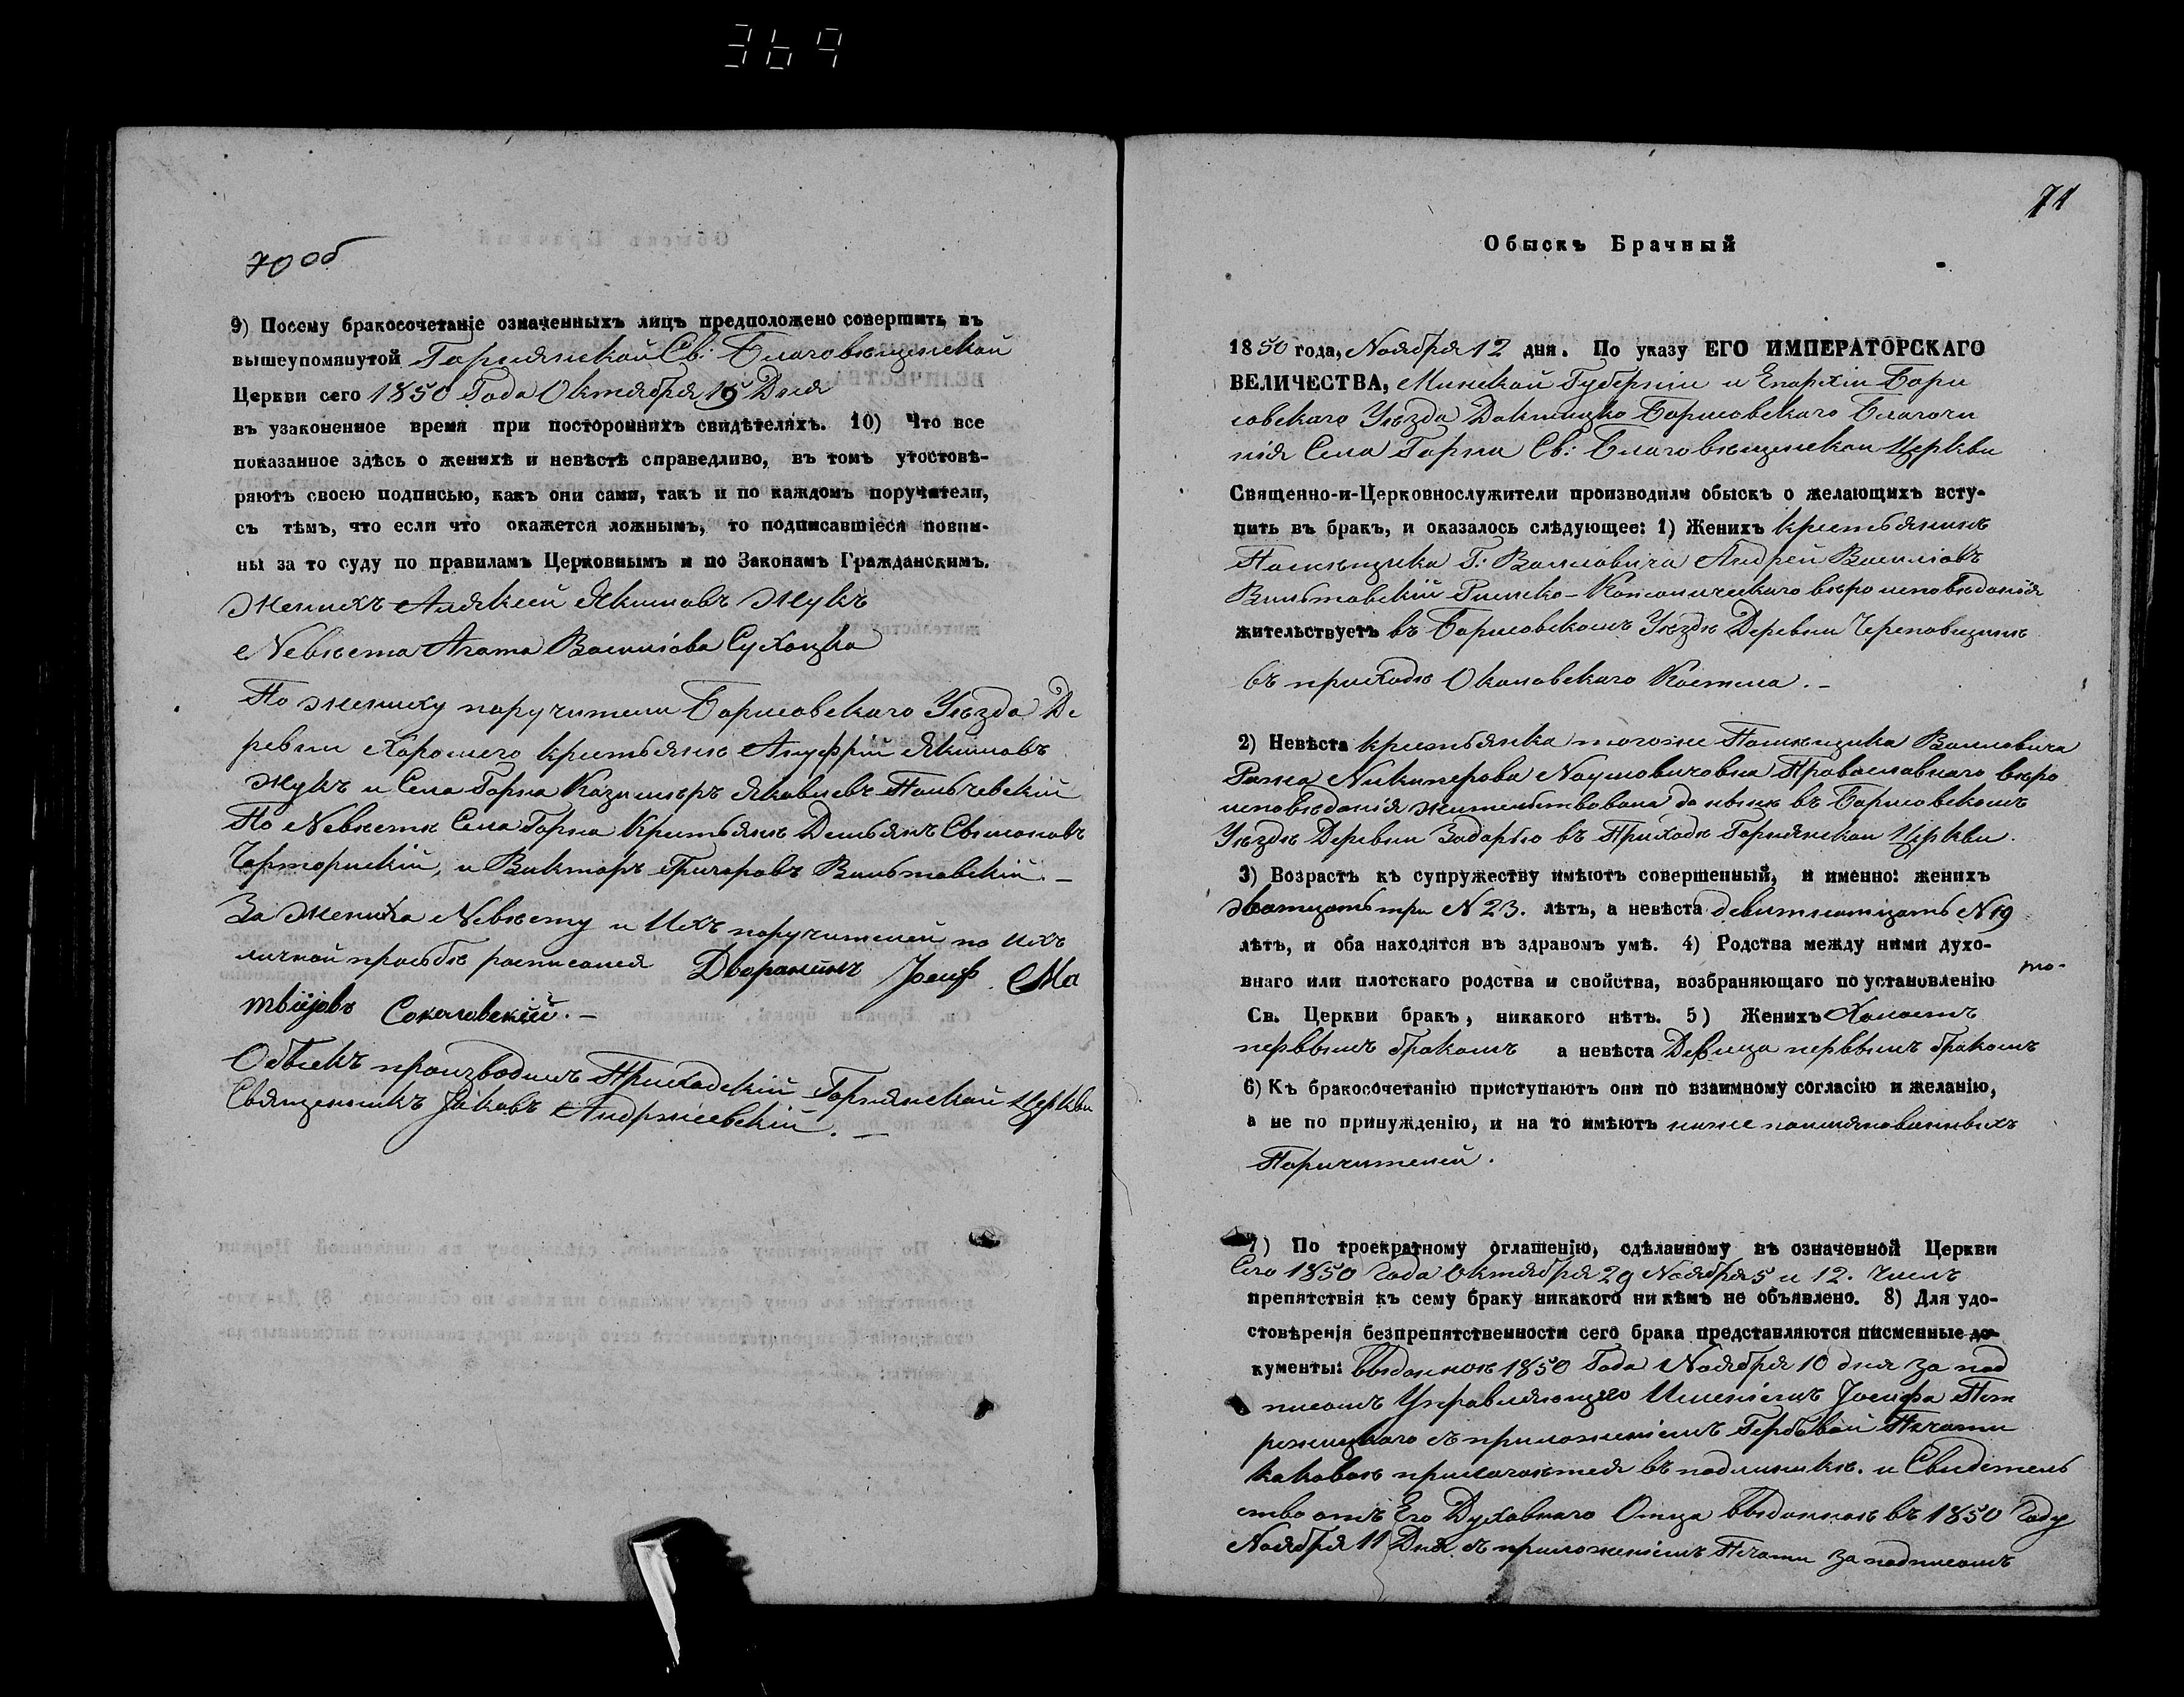 369
70 об
9) Посему бракосочетаніе означенныхъ лицъ предположено совершить въ
вышеупомянутой Горнянской Св: Благовещенской
Церкви сего 1850 Года Октября 15 Дня
въ узаконенное время при постороннихъ свидѣтеляхъ. 10) Что все
показанное здѣсь о женихѣ и невѣстѣ справедливо, въ томъ утостовѣ-
ряютъ своею подписью, какъ они сами, такъ и по каждомъ поручители,
съ тѣмъ, что если что окажется ложнымъ, то подписавшіеся повин-
ны за то суду по правиламъ Церковнымъ и по Законамъ Гражданскимъ.
Женихъ Аляксей Якимовъ Жукъ
Невѣста Агата Василіова Сухоцка
По жениху поручители Борисовскаго Уѣзда Де
ревни Хорошего крестьянѣ Ануфрій Якимовъ
Жукъ и Села Горна Казимѣръ Яковлевъ Польчевскій
По Невѣстѣ Села Горна Крестьянѣ Демьянъ Сымоновъ
Чорторискій, и Викторъ Григоровъ Вильтовскій. –
За Жениха Невѣсту и Ихъ поручителей по Ихъ
личной прозьбѣ росписался Дворанинъ Јосиф Ма
твѣјовъ Соколовскій. –
Обыскъ производилъ Приходскій Горнянской Церкви
Священникъ Јаковъ Андржеевскій. –
71
Обыскъ Брачный
1850 года, Ноября 12 дня. По указу ЕГО ИМПЕРАТОРСКАГО
ВЕЛИЧЕСТВА, Минской Губерніи и Епархіи Бори
совскаго Уѣзда Докшицко Борисовского Благочи
нія Села Горна Св: Благовѣщенской Церкви
Священно-и-Церковнослужители производили обыскъ о желающихъ всту-
пить въ бракъ, и оказалось слѣдующее: 1) Женихъ крестьянинъ
Помѣщика Г: Воловича Андрей Василіовъ
Вильтовскій Римско-Католическаго вѣроисповѣданія
жительствуетъ въ Борисовскомъ Уѣздѣ Деревни Череповщинѣ
въ приходѣ Околовскаго Костела. –
2) Невѣста крестьянка тогоже Помѣщика Воловича
Рожа Никиперова Наумовичовна Православнаго вѣро
исповѣданія жительствовала до нынѣ въ Борисовскомъ
Уѣздѣ Деревни Задорью въ Приходѣ Горнянской Церкви.
3) Возрастъ къ супружеству имѣютъ совершенный, и именно: женихъ
дватцать три N 23. лѣтъ, а невѣста девитнатцать N 19
лѣтъ, и оба находятся въ здравомъ умѣ. 4) Родства между ними духо-
внаго или плотскаго родства и свойства, возбраняющаго по установленію
Св. Церкви бракъ, никакого нѣтъ. 5) Женихъ Холостъ
первымъ бракомъ а невѣста Девица первымъ бракомъ
6) Къ бракосочетанію приступаютъ они по взаимному согласію и желанію,
а не по принужденію, и на то имѣютъ ниже поимянованныхъ
Поручителей.
7) По троекратному оглашенію, сдѣланному въ означенной Церкви
Сего 1850 Года Октября 29 Ноября 5 и 12. Числъ
препятствія къ сему браку никакого никѣмъ не объявлено. 8) Для удо-
стовѣренія безпрепятственности сего брака представляются писменные до-
кументы: Выданноѣ 1850 Года Ноября 10 дня за под
писомъ Управляющего Имѣніемъ Јосифа
съ приложеніемъ Гербовой Печати
каковоѣ прилогаѣтся въ подлинникѣ. и Свидетель
ство отъ Его Духовнаго Отца Выданноѣ въ 1850 Году
Ноября 11 Дня съ приложеніемъ Печати за подписомъ